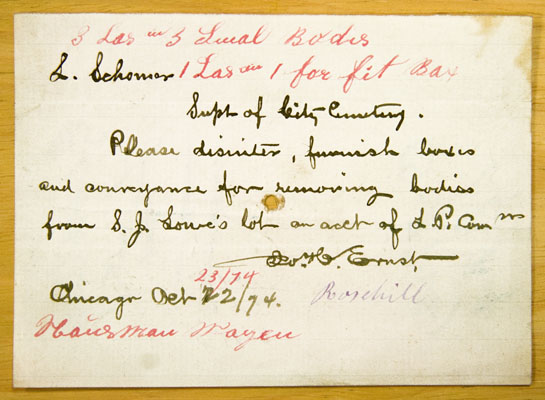 3 Las 3 Bodis
L. Schomer 1 Las 1 for fit Bax
Supt of City Cemetery.
Please disinter, furnish boxes
and conveyance for removing bodies
from S. J. Lowe's lot on acct of L. P. Comrs
Ernst,
23/74
Chicago Oct 22/74. Rosehill
Hausman Wagen